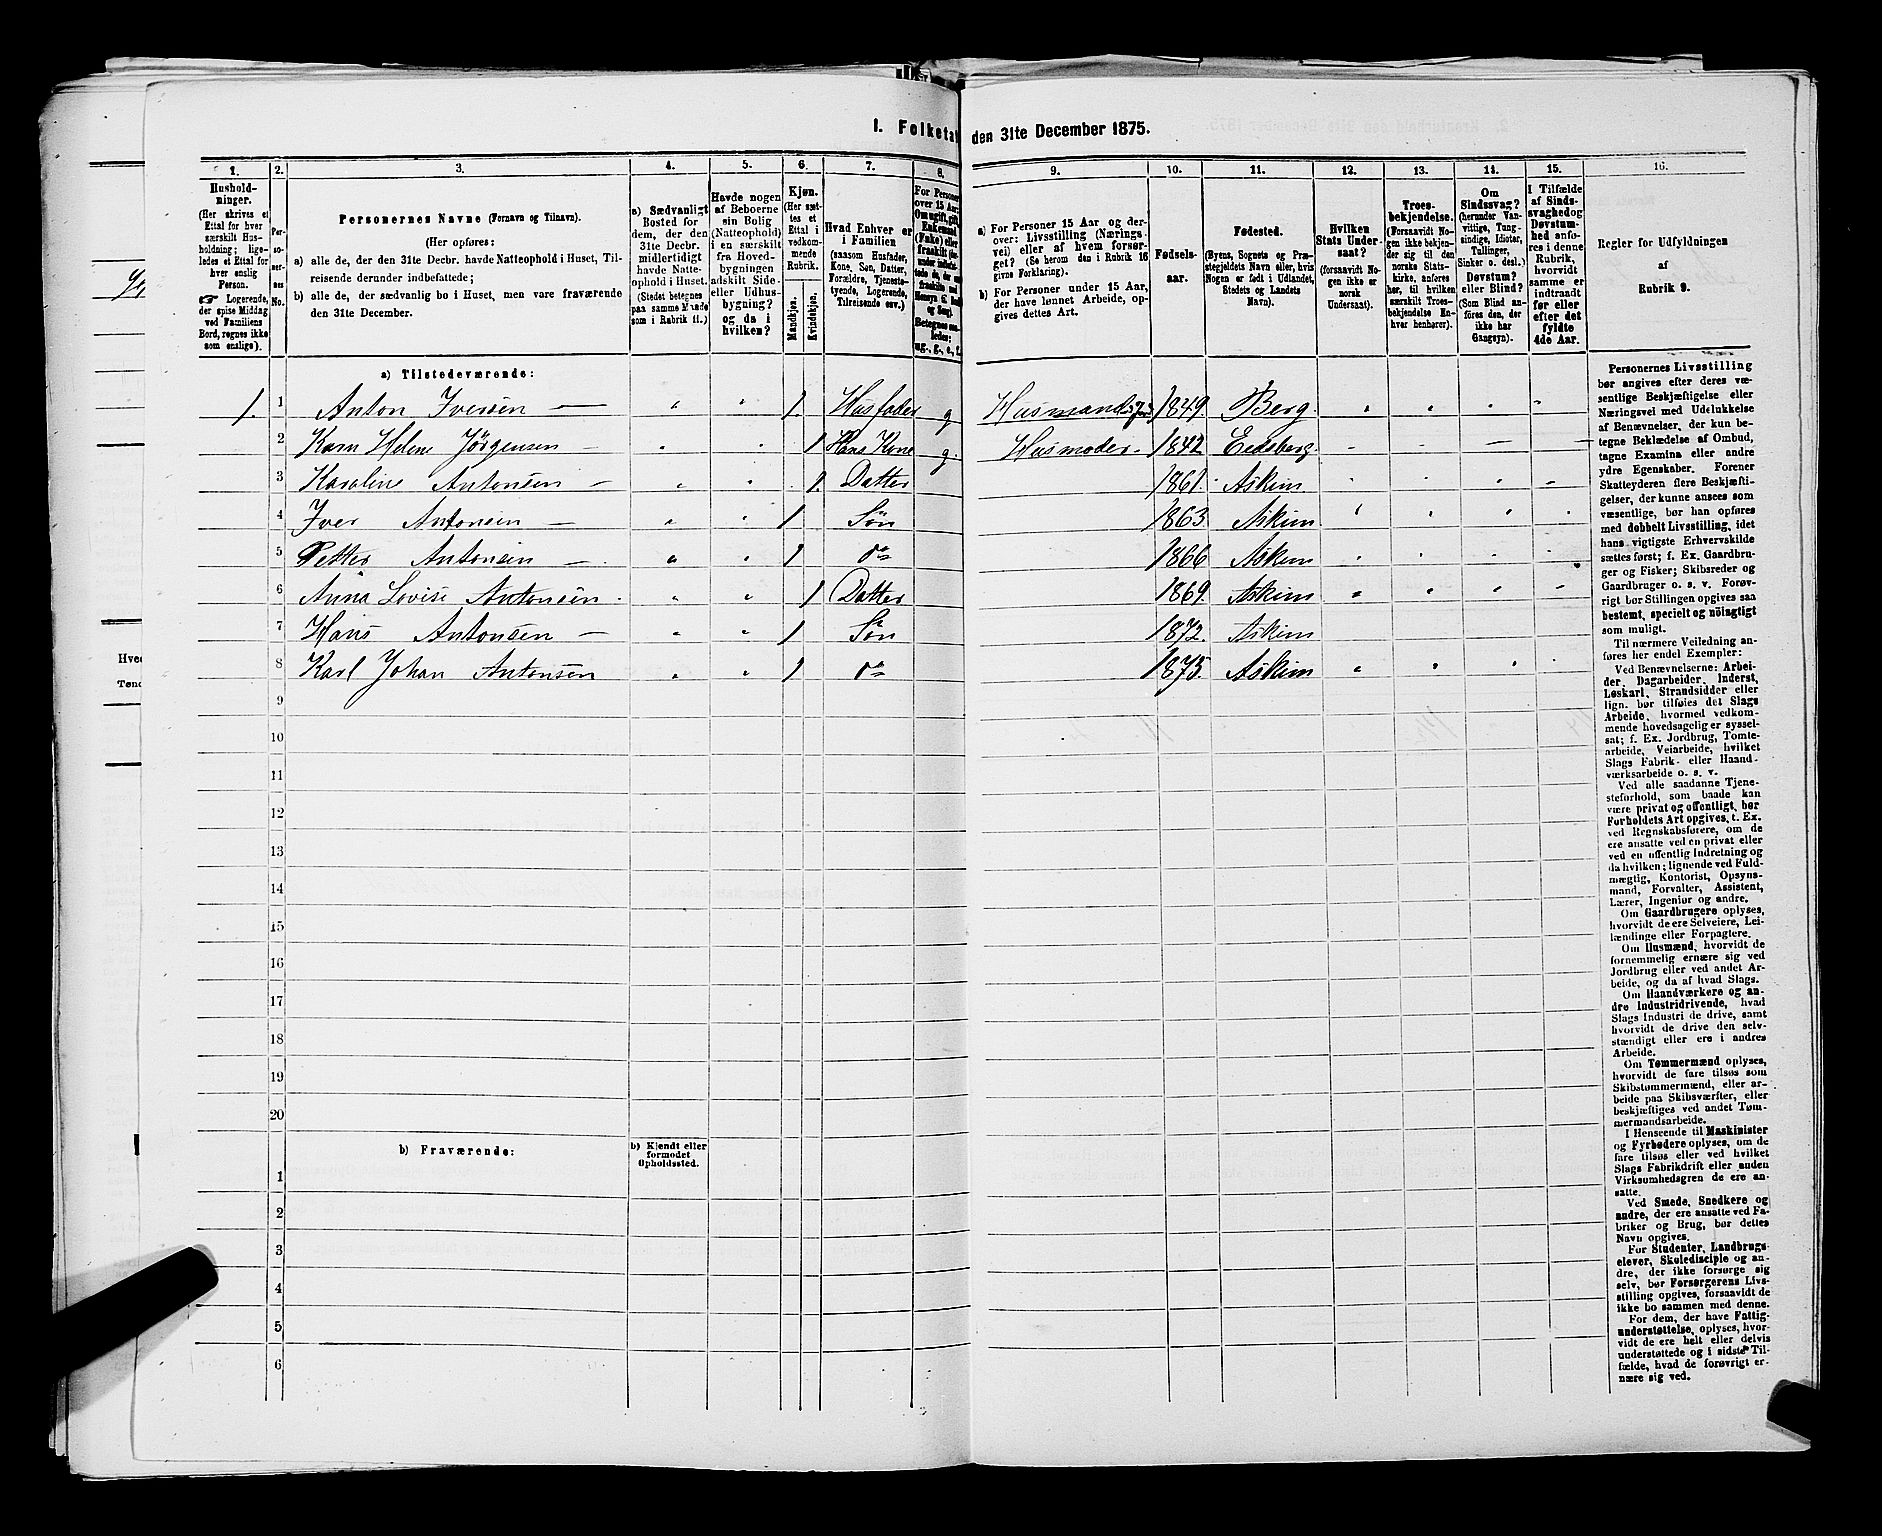 I. Folketæ
den 31te December 1875.
1. 2. 3. 4. 5. 6. 7. 8. 9. 10. 11. 12. 13. 14. 15. 16.
Hushold-
ninger.
(Her skrives et
Ettal for hver
særskilt Hus-
holdning; lige-
ledes et Ettal for
hver enslig
Person.
Logerende,
der spise Middag
ved Familiens
Bord, regnes ikke
som enslige).
Per-
so-
ner-
nes
No.
Personernes Navne (Fornavn og Tilnavn).
(Her opføres:
a) alle de, der den 31te Decbr. havde Natteophold i Huset, Til-
reisende derunder indbefattede;
b) alle de, der sædvanlig bo i Huset, men vare fraværende
den 31te December.
a) Sædvanligt
Bosted for
dem, der den
31te Decbr.
midlertidigt
havde Natte-
ophold i Huset.
(Stedet betegnes
paa samme Maade
som i Rubrik 11.)
Havde nogen
af Beboerne
sin Bolig
(Natteophold)
i en særskilt
fra Hoved-
bygningen
adskilt Side-
eller Udhus-
bygning?
og da i
hvilken?
Kjøn.
(Her sæt-
tes et
Ettal i
vedkom-
mende
Rubrik.
Mandkjøn.
Kvindekjøn.
Hvad Enhver er
i Familien
(saasom Husfader,
Kone, Søn, Datter,
Forældre, Tjeneste-
tyende, Logerende,
Tilreisende osv.)
For Personer
over 15 Aar:
Om ugift, gift,
Enkemand
(Enke) eller
fraskilt
Betegnes saa-
ledes:
ug., g., e., f.
a) For Personer 15 Aar og der-
over: Livsstilling (Nærings-
vei) eller af hvem forsør-
get? (Se herom den i Rubrik 16
givne Forklaring).
b) For Personer under 15 Aar,
der have lønnet Arbeide, op-
gives dettes Art.
Fødsels-
aar.
Fødested.
(Byens, Sognets og Præ-
stegjeldets Navn eller, hvis
Nogen er født i Udlandet,
Stedets og Landets
Navn).
Hvilken
Stats Under-
saat?
(forsaavidt No-
gen ikke er
norsk
Undersaat).
Troes-
bekjendelse.
(Forsaavidt No-
gen ikke bekjen-
der sig til den
norske Stats-
kirke, anføres
her, til hvilken
særskilt Troes-
bekjendelse En-
hver henhører).
Om
Sindssvag?
(herunder Van-
vittige, Tung-
sindige, Idioter,
Tullinger,
Sinker o. desl.)
Døvstum?
eller Blind?
(Som Blind an-
føres den, der
ikke har
Gangsyn).
I Tilfælde
af Sinds-
svaghed og
Døvstum-
hed anfø-
res i denne
Rubrik,
hvorvidt
samme er
indtraadt
før eller
efter det
fyldte
4de Aar.
Regler for Udfyldningen
af
Rubrik 9.
a) Tilstedeværende:
1. 1 Anton Iversen — " " 1. Husfader g Husmand 1849. Berg. " " " "
2 Karn Helene Jörgensen — " " 1 Hans Kone g. Husmoder. 1842 Eedsberg. — — — —
3 Karoline Antonsen — " " 1. Datter 1861. Askim. " " " "
4 Iver Antonsen — " " 1 Sön 1863. Askim " " " "
5 Petter Antonsen — " " 1 do 1866 Askim " " " "
6 Anna Lovise Antonsen. " " 1 Datter 1869. Askim " " " "
7 Hans Antonsen — " " 1 Sön 1872. Askim
8 Karl Johan Antonsen " " 1 do 1875. Askim " " " "
9
10
11
12
13
14
15
16
17
18
19
20
b) Fraværende:
b) Kjendt eller
formodet
Opholdssted.
1
2
3
4
5
6
Personernes Livsstilling
bør angives efter deres væ-
sentlige Beskjæftigelse eller
Næringsvei med Udelukkelse
af Benævnelser, der kun be-
tegne Beklædelse af Ombud,
tagne Examina eller andre
ydre Egenskaber. Forener
Skatteyderen flere Beskjæfti-
gelser, der kunne ansees som
væsentlige, bør han opføres
med dobbelt Livsstilling, idet
hans vigtigste Erhvervskilde
sættes først; f. Ex. Gaardbru-
ger og Fisker; Skibsreder og
Gaardbruger o. s. v. Forøv-
rigt bør Stillingen opgives saa
bestemt, specielt og nöiagtigt
som muligt.
Til nærmere Veiledning an-
føres her endel Exempler:
Ved Benævnelserne: Arbei-
der, Dagarbeider, Inderst,
Løskarl, Strandsidder eller
lign. bør tilføies det Slags
Arbeide, hvormed vedkom-
mende hovedsagelig er syssel-
sat; f. Ex. Jordbrug, Tomte-
arbeide, Veiarbeide, hvilket
Slags Fabrik- eller Haand-
værksarbeide o. s. v.
Ved alle saadanne Tjene-
steforhold, som baade kan
være privat og offentligt, bør
Forholdets Art opgives, t. Ex.
ved Regnskabsførere, om de
ere ansatte ved en privat eller
ved en offentlig Indretning og
da hvilken; lignende ved Fuld-
mægtig, Kontorist, Opsyns-
mand, Forvalter, Assistent,
Lærer, Ingeniør og andre.
Om Gaardbrugere oplyses,
hvorvidt de ere Selveiere, Lei-
lændinge eller Forpagtere.
Om Husmænd, hvorvidt de
fornemmelig ernære sig ved
Jordbrug eller ved andet Ar-
beide, og da af hvad Slags.
Om Haandværkere og an-
dre Industridrivende, hvad
Slags Industri de drive, samt
hvorvidt de drive den selv-
stændigt eller ere i andres
Arbeide.
Om Tømmermænd oplyses,
hvorvidt de fare tilsøs som
Skibstømmermænd, eller ar-
beide paa Skibsværfter, eller
beskjæftiges ved andet Tøm-
mermandsarbeide.
I Henseende til Maskinister
og Fyrbødere oplyses, om de
fare tilsøs eller ved hvilket
Slags Fabrikdrift eller anden
Virksomhedsgren de ere an-
satte.
Ved Smede, Snedkere og
andre, der ere ansatte ved Fa-
briker og Brug, bør dettes
Navn opgives.
For Studenter, Landbrugs-
elever, Skoledisciple og an-
dre, der ikke forsørge sig
selv, bør Forsørgerens Livs-
stilling opgives, forsaavidt de
ikke bo sammen med denne.
For dem, der have Fattig-
understøttelse, oplyses, hvor-
vidt de ere helt eller delvis
understøttede og i sidste Til-
fælde, hvad de forøvrigt er-
nære sig ved.